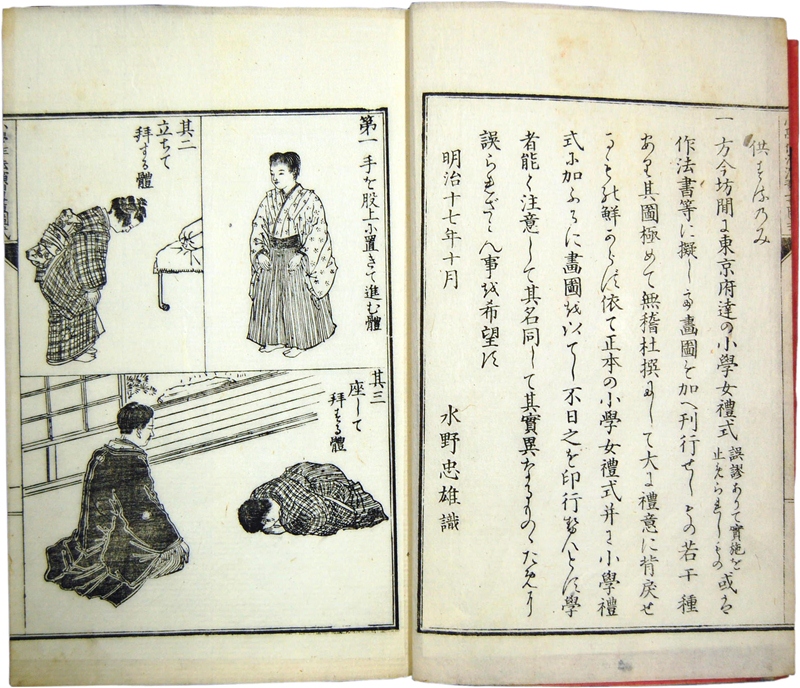 供するのみ
一方今坊間に東京府達の小學女禮式
誤謬ありて實施を
止められしもの
或は
作法書等に擬して畫圖を加へ刊行せしもの若干種
あり其圖極めて無稽杜撰にして大に禮意に背戻せ
るもの鮮からず依て正本の小學女禮式并に小學禮
式に加ふるに畫圖を以てし不日之を印行せんとす學
者能く注意して其名同して其實異なるものゝために
誤られざらん事を希望す
明治十七年十月
水野忠雄識
第一 手を股上に置きて進む體
其二
立ちて
拜する體
其三
座して
拜する體